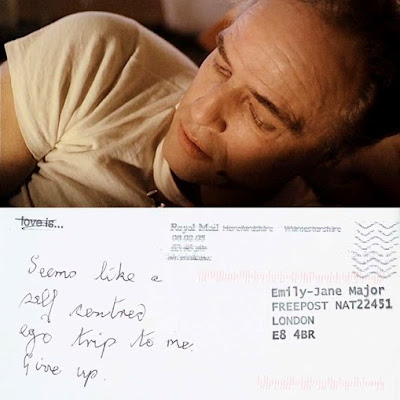 love is...
Royal Mail
Seems like a
self centred
ego trip to me.
Give up.
Emily-Jane Major
FREEPOST NAT22451
LONDON
E8 4BR